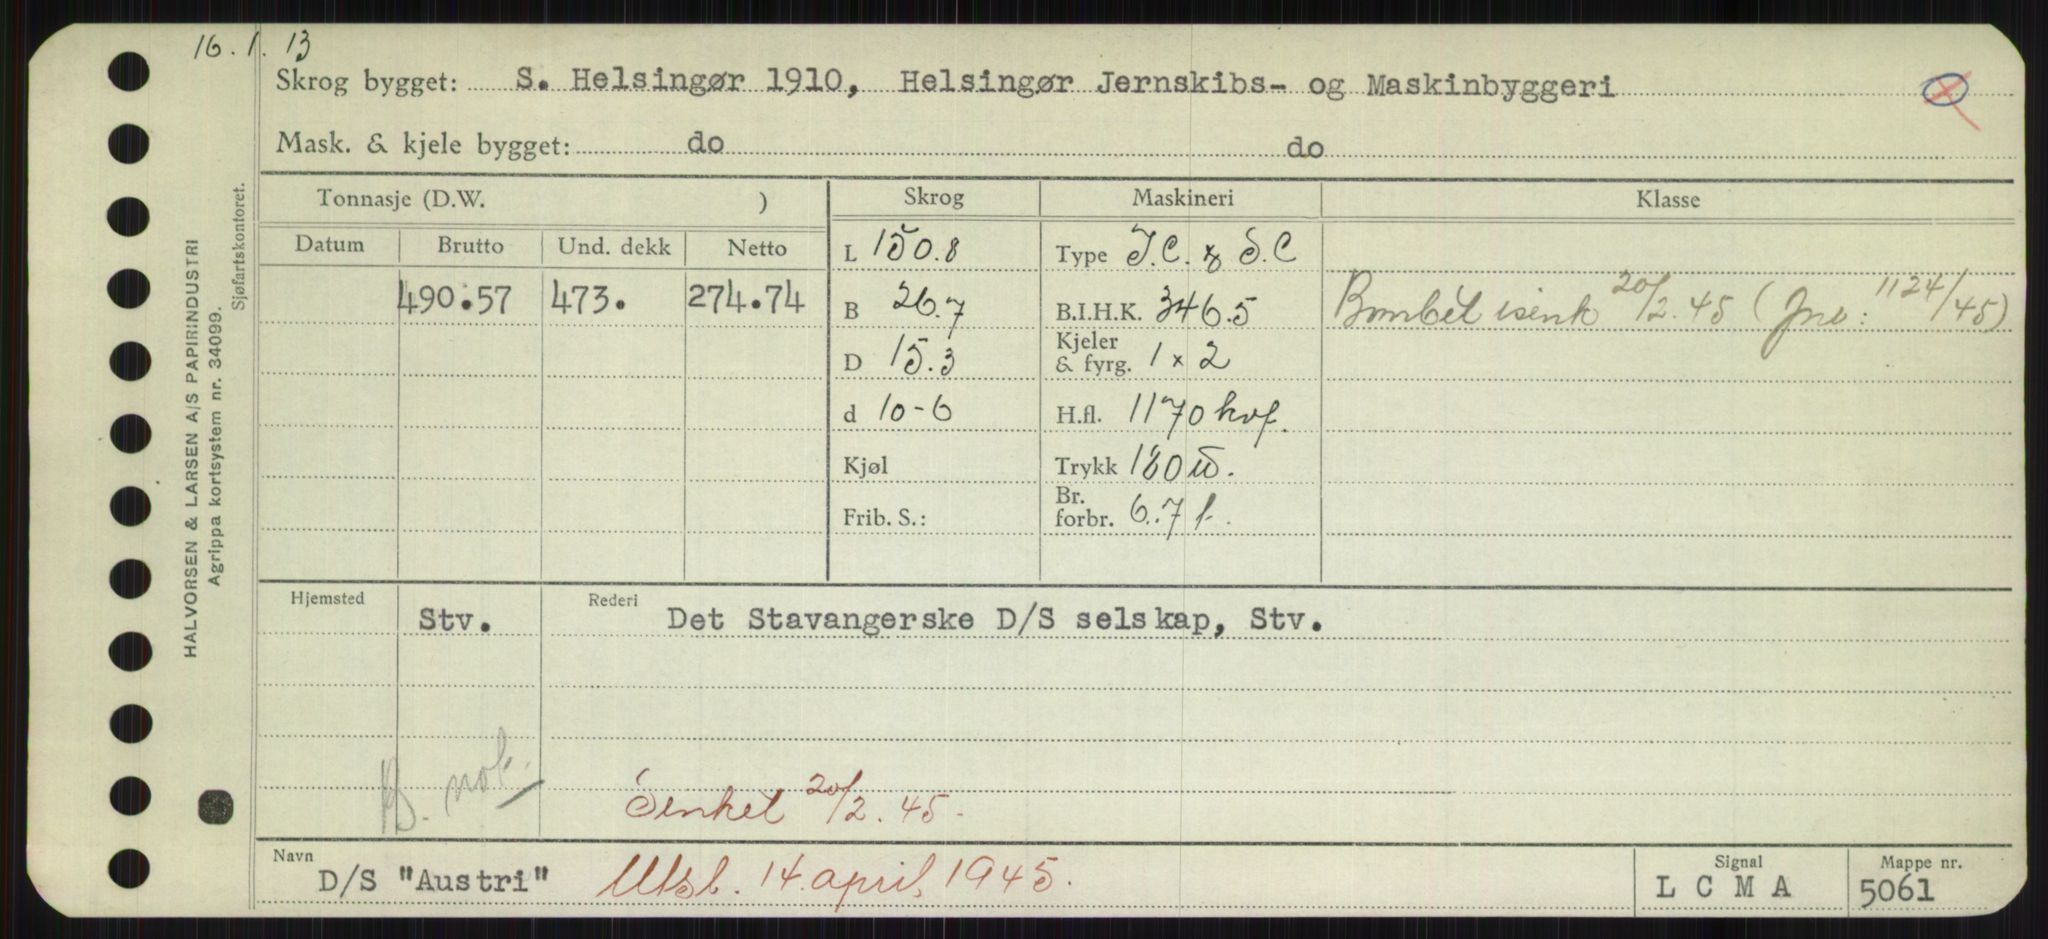 16. 1. 13
Skrog bygget: S. Helsingør 1910, Helsingør Jernskibs- og Maskinbyggeri
Mask. & kjele bygget: do do
Tonnasje (D.W. ) Skrog Maskineri Klasse
Datum Brutto Und. dekk Netto
L 150.8 Type T.C. & S.C
490.57 473. 274.74 B 26.7 B.I.H.K. 346.5 Bombet i senk 20/2.45 (Jnr: 1124/45)
D 15.3 Kjeler & fyrg. 1 x 2
d 10-6 H.fl. 1170 kvf.
Kjøl Trykk 180 W.
Frib. S.: Br. forbr. 6.7 t.
Hjemsted Rederi
Stv. Det Stavangerske D/S selskap, Stv.
B. not.
Senket 20/2.45.
Navn Signal Mappe nr.
D/S "Austri" Utsl. 14. april 1945. L C M A 5061
HALVORSEN & LARSEN A/S PAPIRINDUSTRI
Agrippa kortsystem nr. 34099.
Sjøfartskontoret.